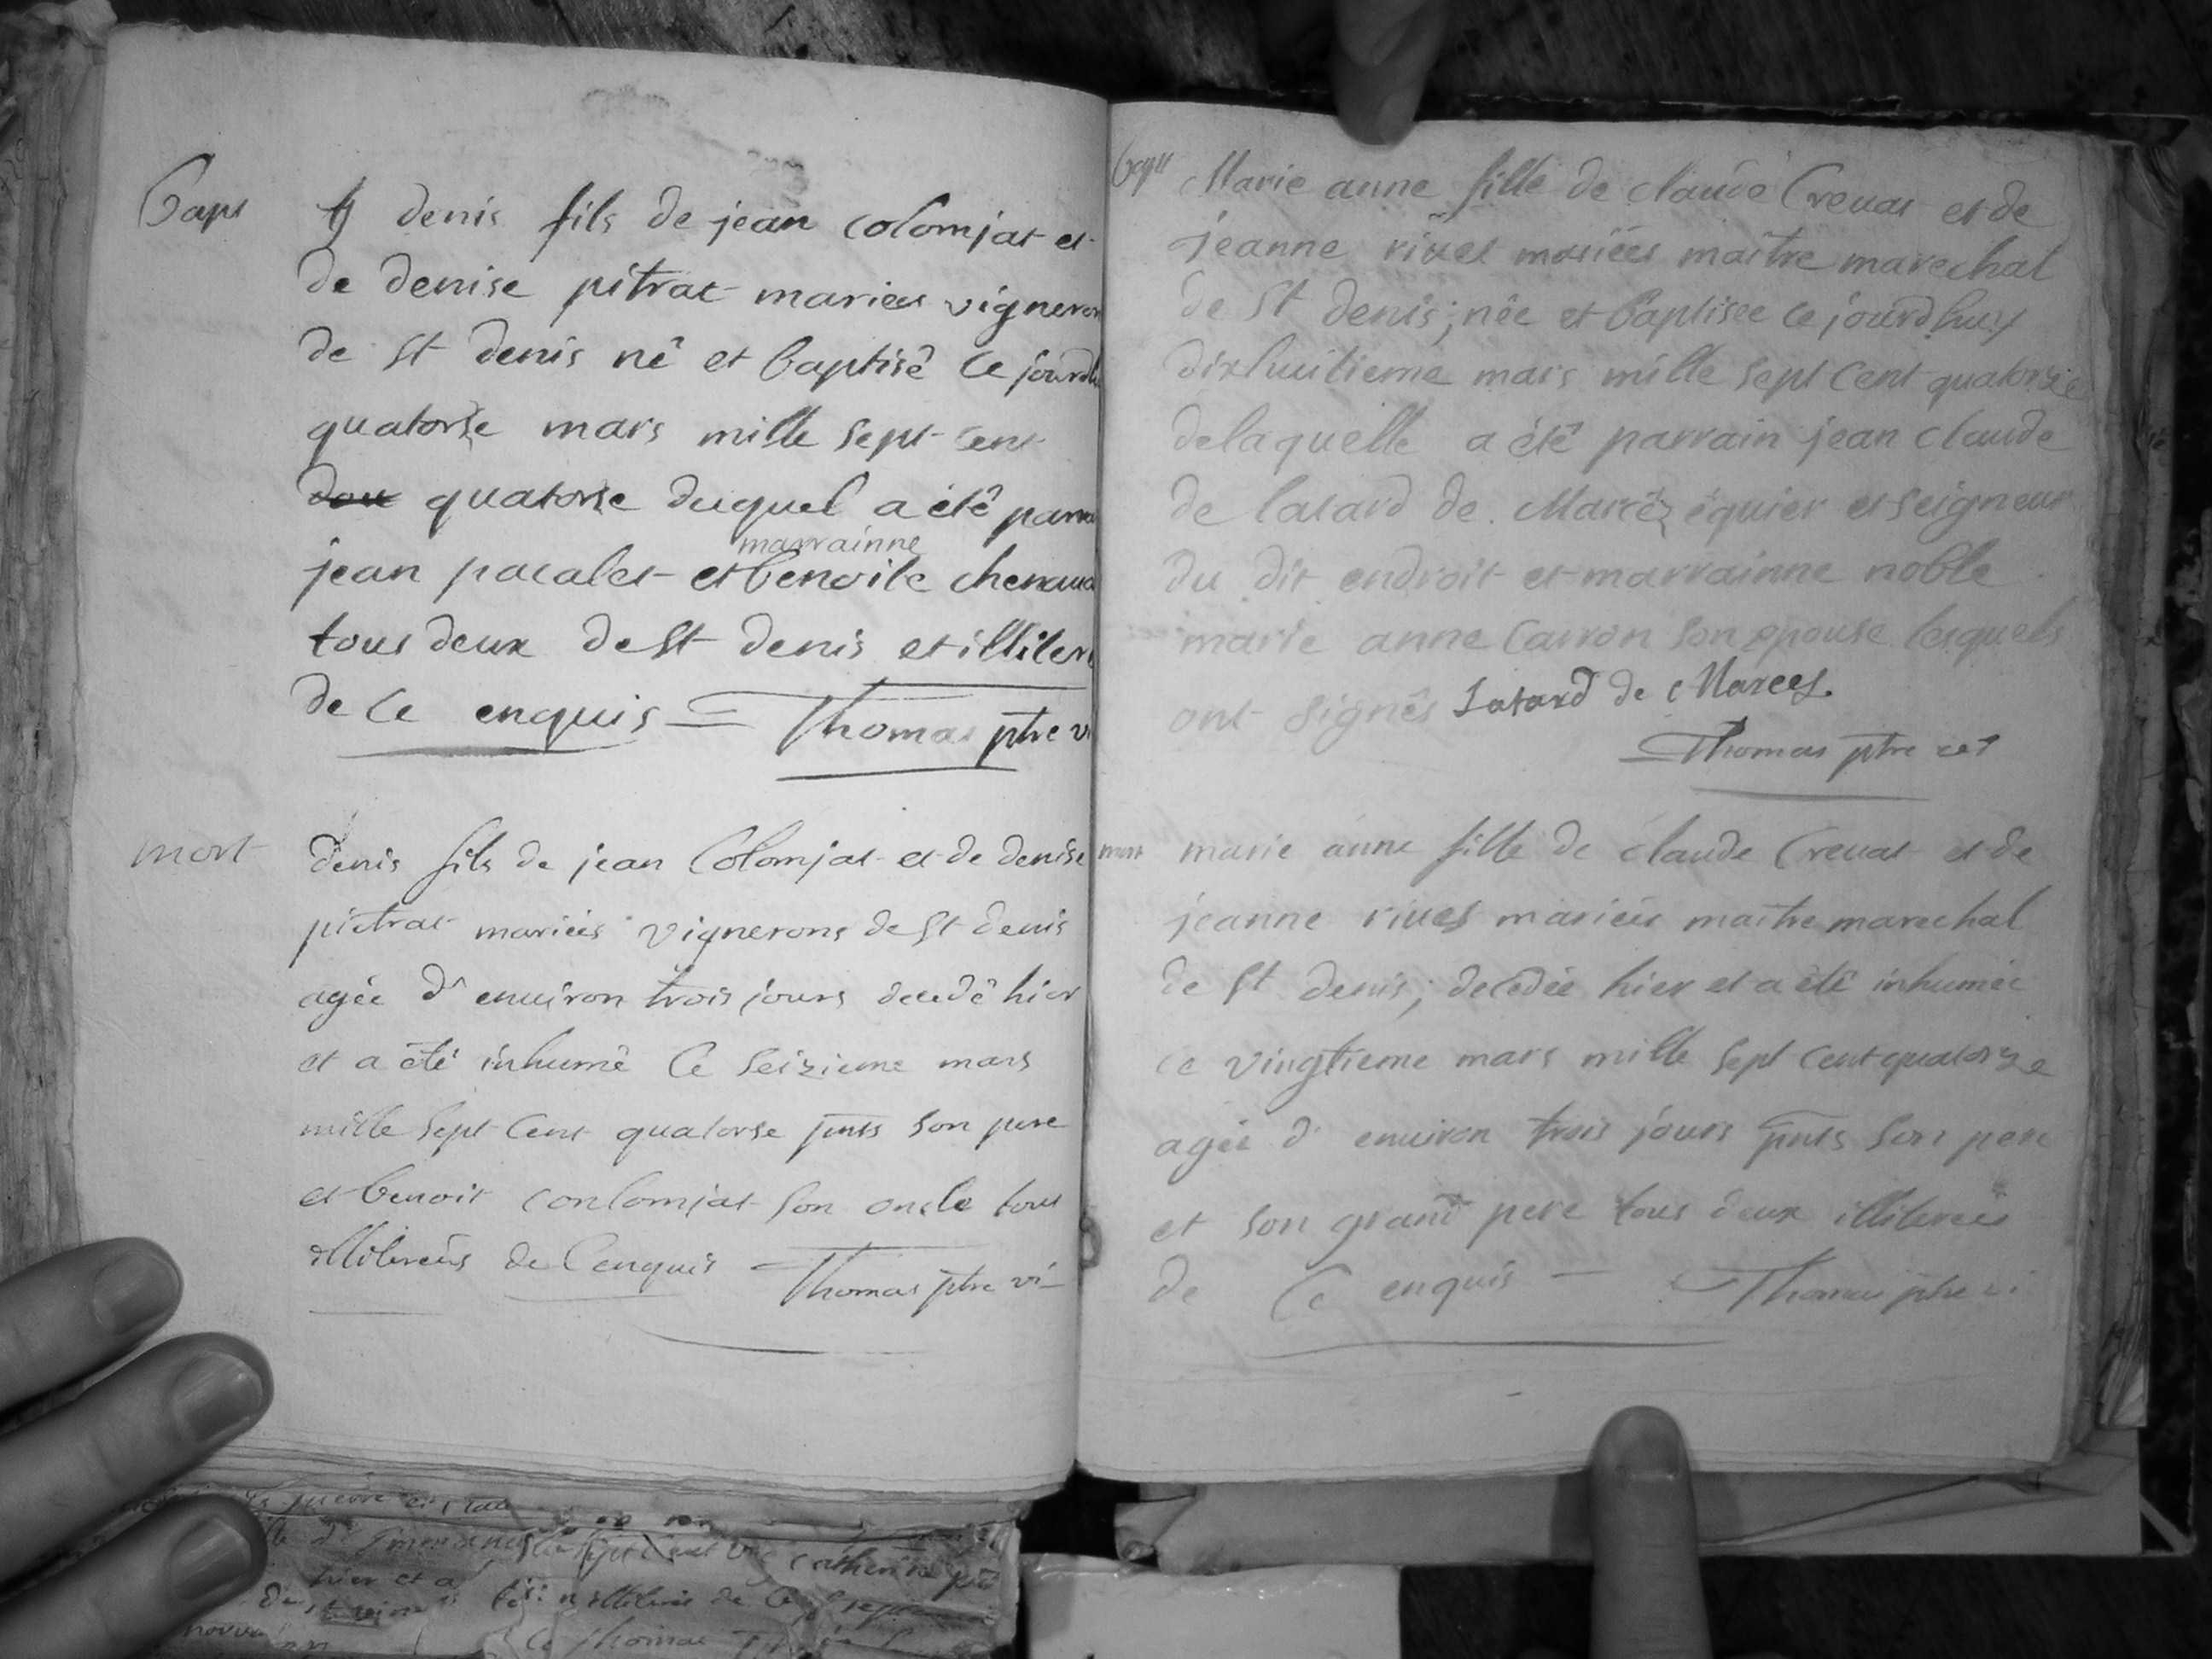 Bapt
denis fils de jean colomjat et
de denise pitrat mariés vigneron
de St denis né et baptisé ce jourdh
quatorse mars mille sept cent
quatorse duquel a été parra
marrainne
jean pacalet et benoite
tous deux de St denis et illiter
de ce enquis = Thomas ptre vi
mort
denis fils de jean Colomjat et de denise
pietrat mariés vignerons de St denis
agée d'environ trois jours decedé hier
et a été inhumé Ce Seizieme mars
mille Sept Cent quatorse pnts son pere
et benoit conlomjat son oncle tous
illiterés de Cenquis Thomas ptre vi
bapt
Marie anne fille de claude Creuat et de
jeanne riuet mariées maître marechal
de St denis; née et baptisée ce jourdhuy
dixhuitieme mars mille sept cent quatorse
delaquelle a été parrain jean claude
de latard de Marcéz équier et seigneur
du dit endroit et marrainne noble
marie anne Carron son epouse lesquels
ont signés Latard de Marcez.
Thomas ptre
mort
marie anne fille de claude Creuat et de
jeanne riuet mariées maitre marechal
de St denis; decedée hier et a été inhumée
ce vingtieme mars mille sept cent quatorze
agée d'environ trois jours pnts son pere
et son grand pere tous deux illiterés
de Ce enquis — Thomas ptre vi
hier et a
Ce thomas